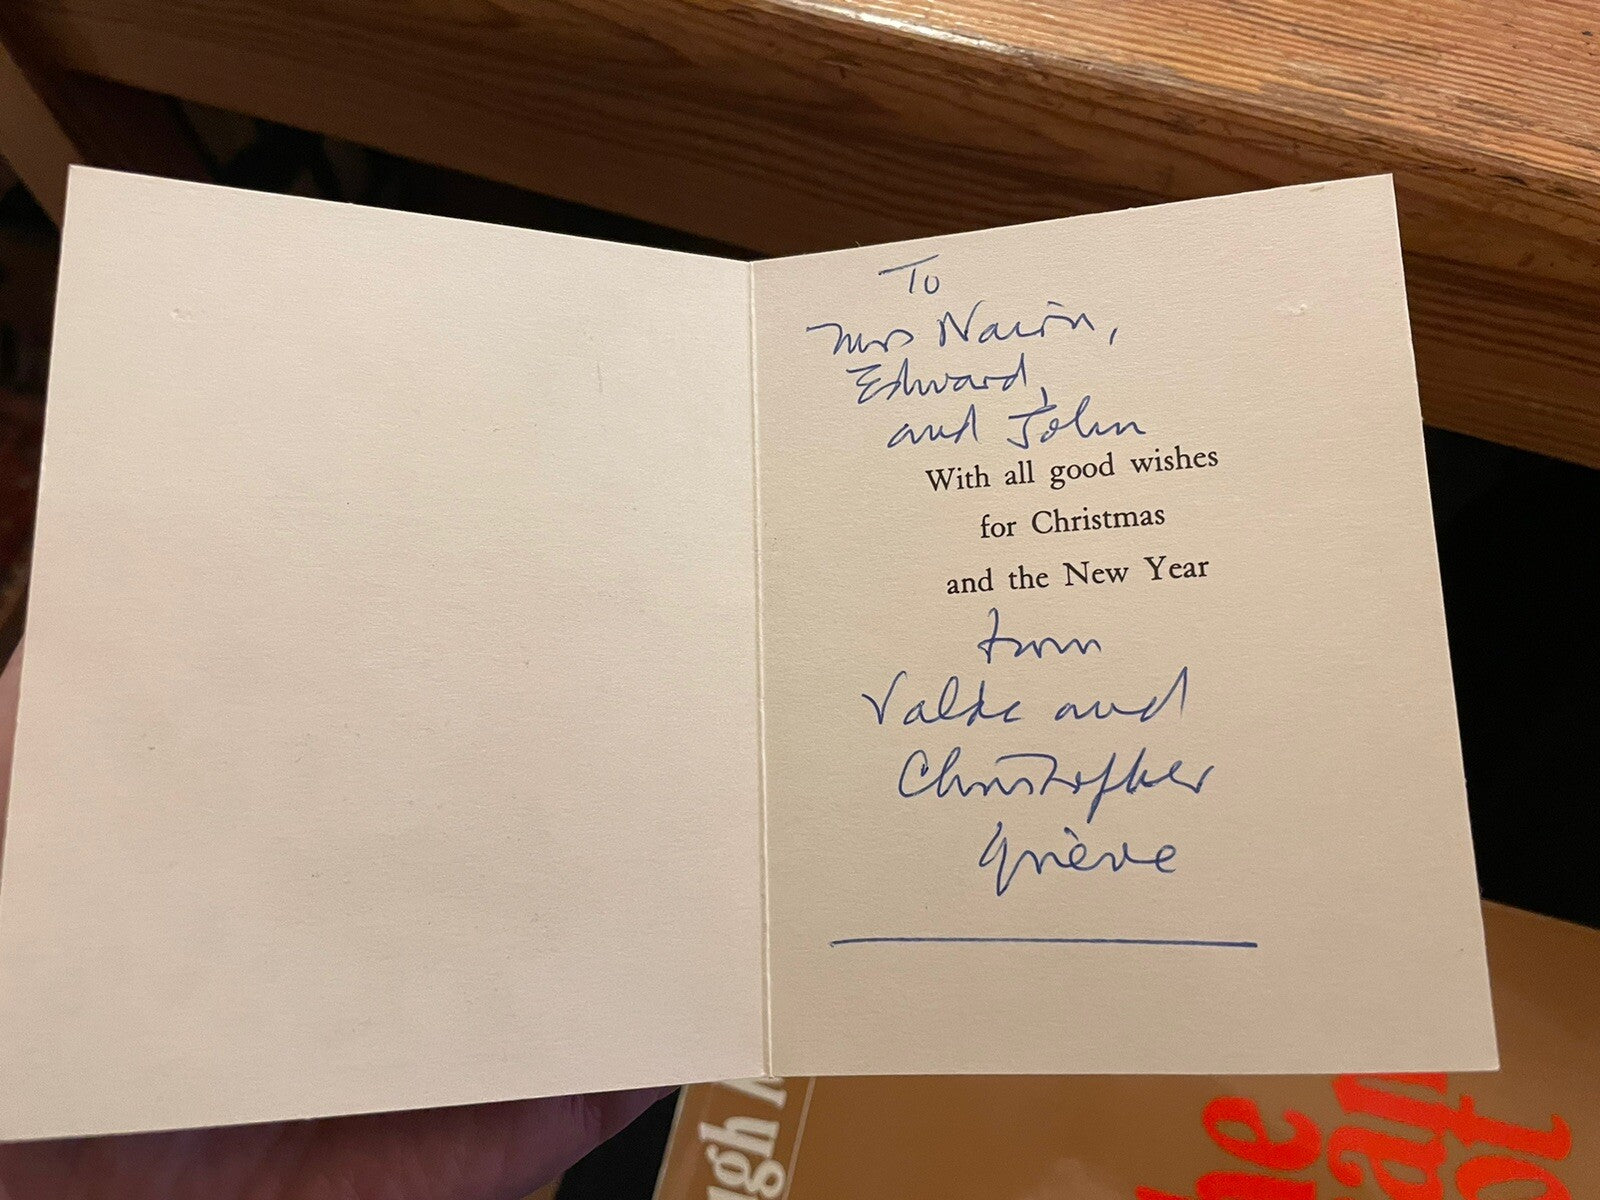 To
Mrs Nairn,
Edward,
and John
With all good wishes
for Christmas
and the New Year
from
Valda and
Christopher
Grieve